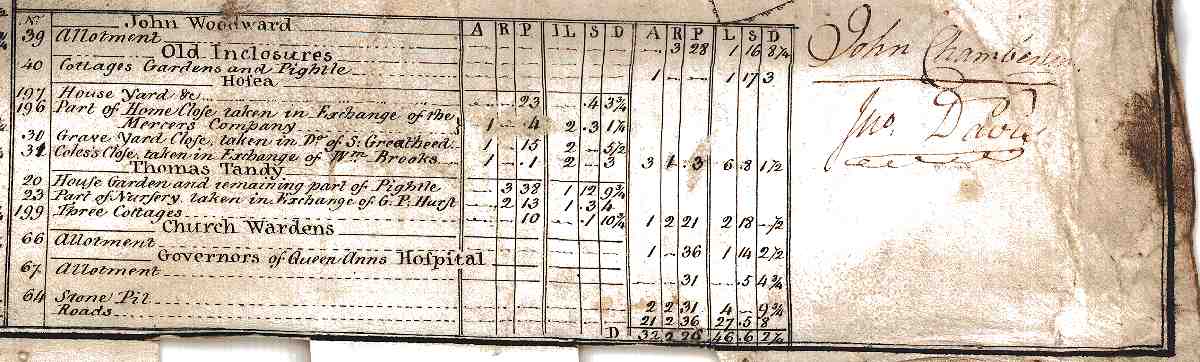 No. John Woodward A R P L S D A R P L S D
39 Allotment 3 28 1 16 8¼
Old Inclosures
40 Cottages Gardens and Pightle 1 - - 1 17 3
Hosea
197 House Yard &c 23 .4 3¾
196 Part of Home Close, taken in Exchange of the
Mercers Company 1 - 4 2 .3 1¼
.30 Grave Yard Close, taken in Do. of S: Greatheed 1 - 15 2 - 5½
31 Coles's Close, taken in Exchange of Wm Brooks 1 - .1 2 - 3 3 .3 6 .8 1½
Thomas Tandy
20 House Garden and remaining part of Pightle - 3 38 1 12 9¾
23 Part of Nursery, taken in Exchange of G. P. Hurst - 2 13 1 .3 4
199 Three Cottages 10 - .1 10¾ 1 2 21 2 18 - ½
Church Wardens
66 Allotment 1 - 36 1 14 2½
Governors of Queen Anns Hospital
67 Allotment 31 - .5 4¾
64 Stone Pit 2 2 31 4 - 9¾
Roads 21 2 36 27 .5 8
D 32 2 46 .6
John Chambers
Jno. Davis